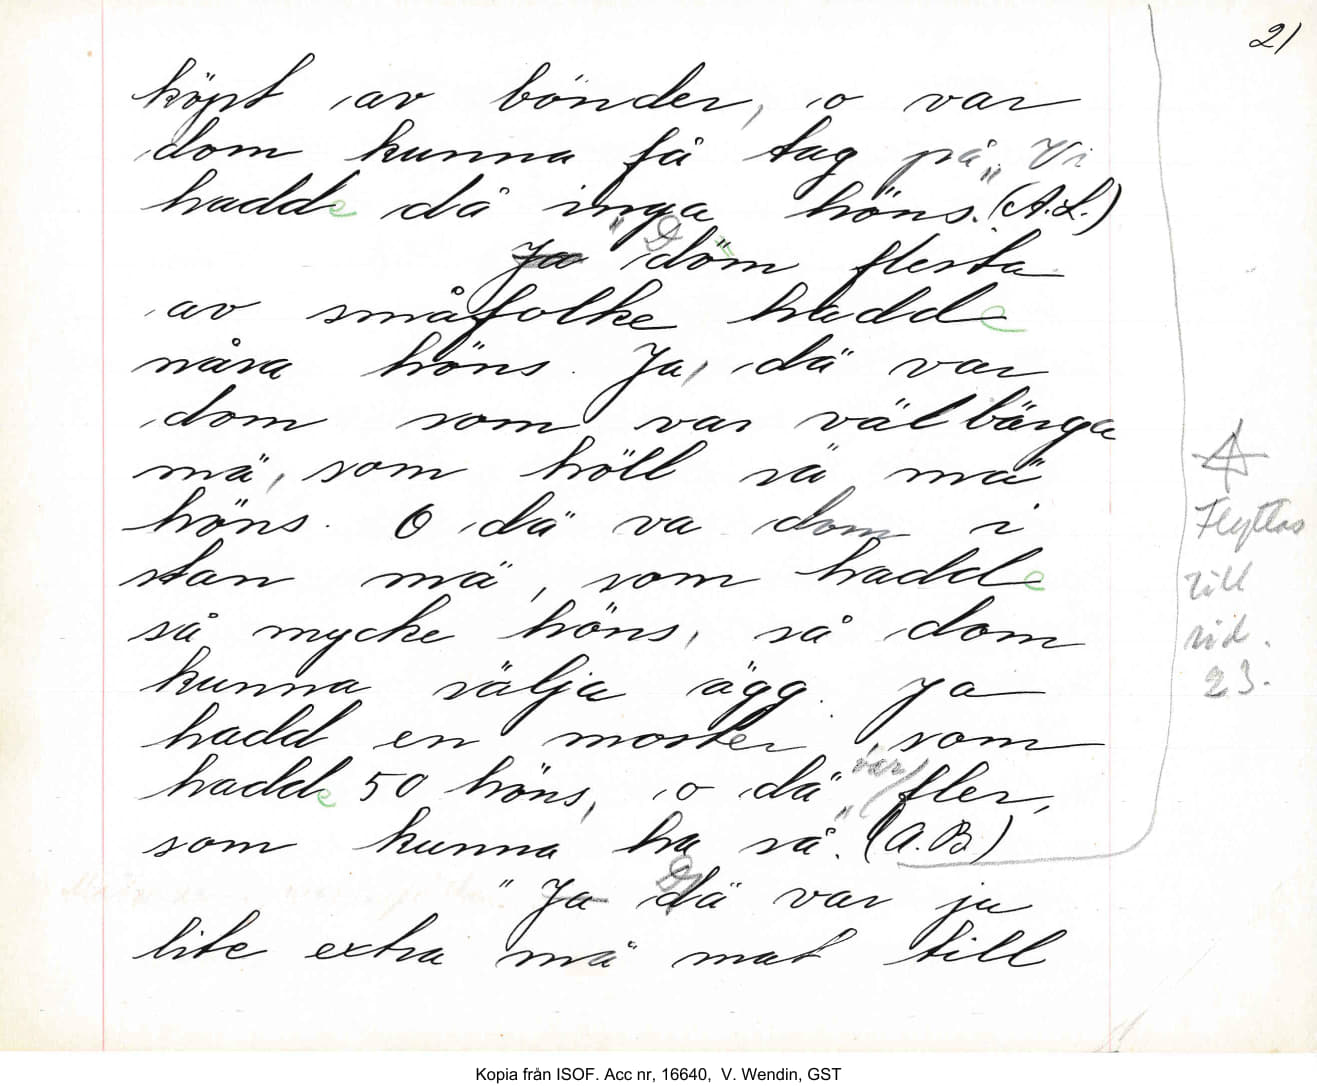 21
köpt av bönder, o var
dom kunna få tag på". Vi
hadde då inga höns. (A.L.)
"Ja döm flesta
av småfolke hadde
nåra höns. Ja, dä var
dom som var välbärga
mä, som höll sä mä
höns. O dä va dom i
stan mä, som hadde
så mycke höns, så dom
kunna sälja ägg. Ja
hadd en moster, som
hadde 50 höns, o dä var fler,
som kunna ha så". (A.B.)
"Ja dä var ju
lite extra mä mat till
Flyttas
till
sid.
23.
Kopia från ISOF. Acc nr, 16640, V. Wendin, GST